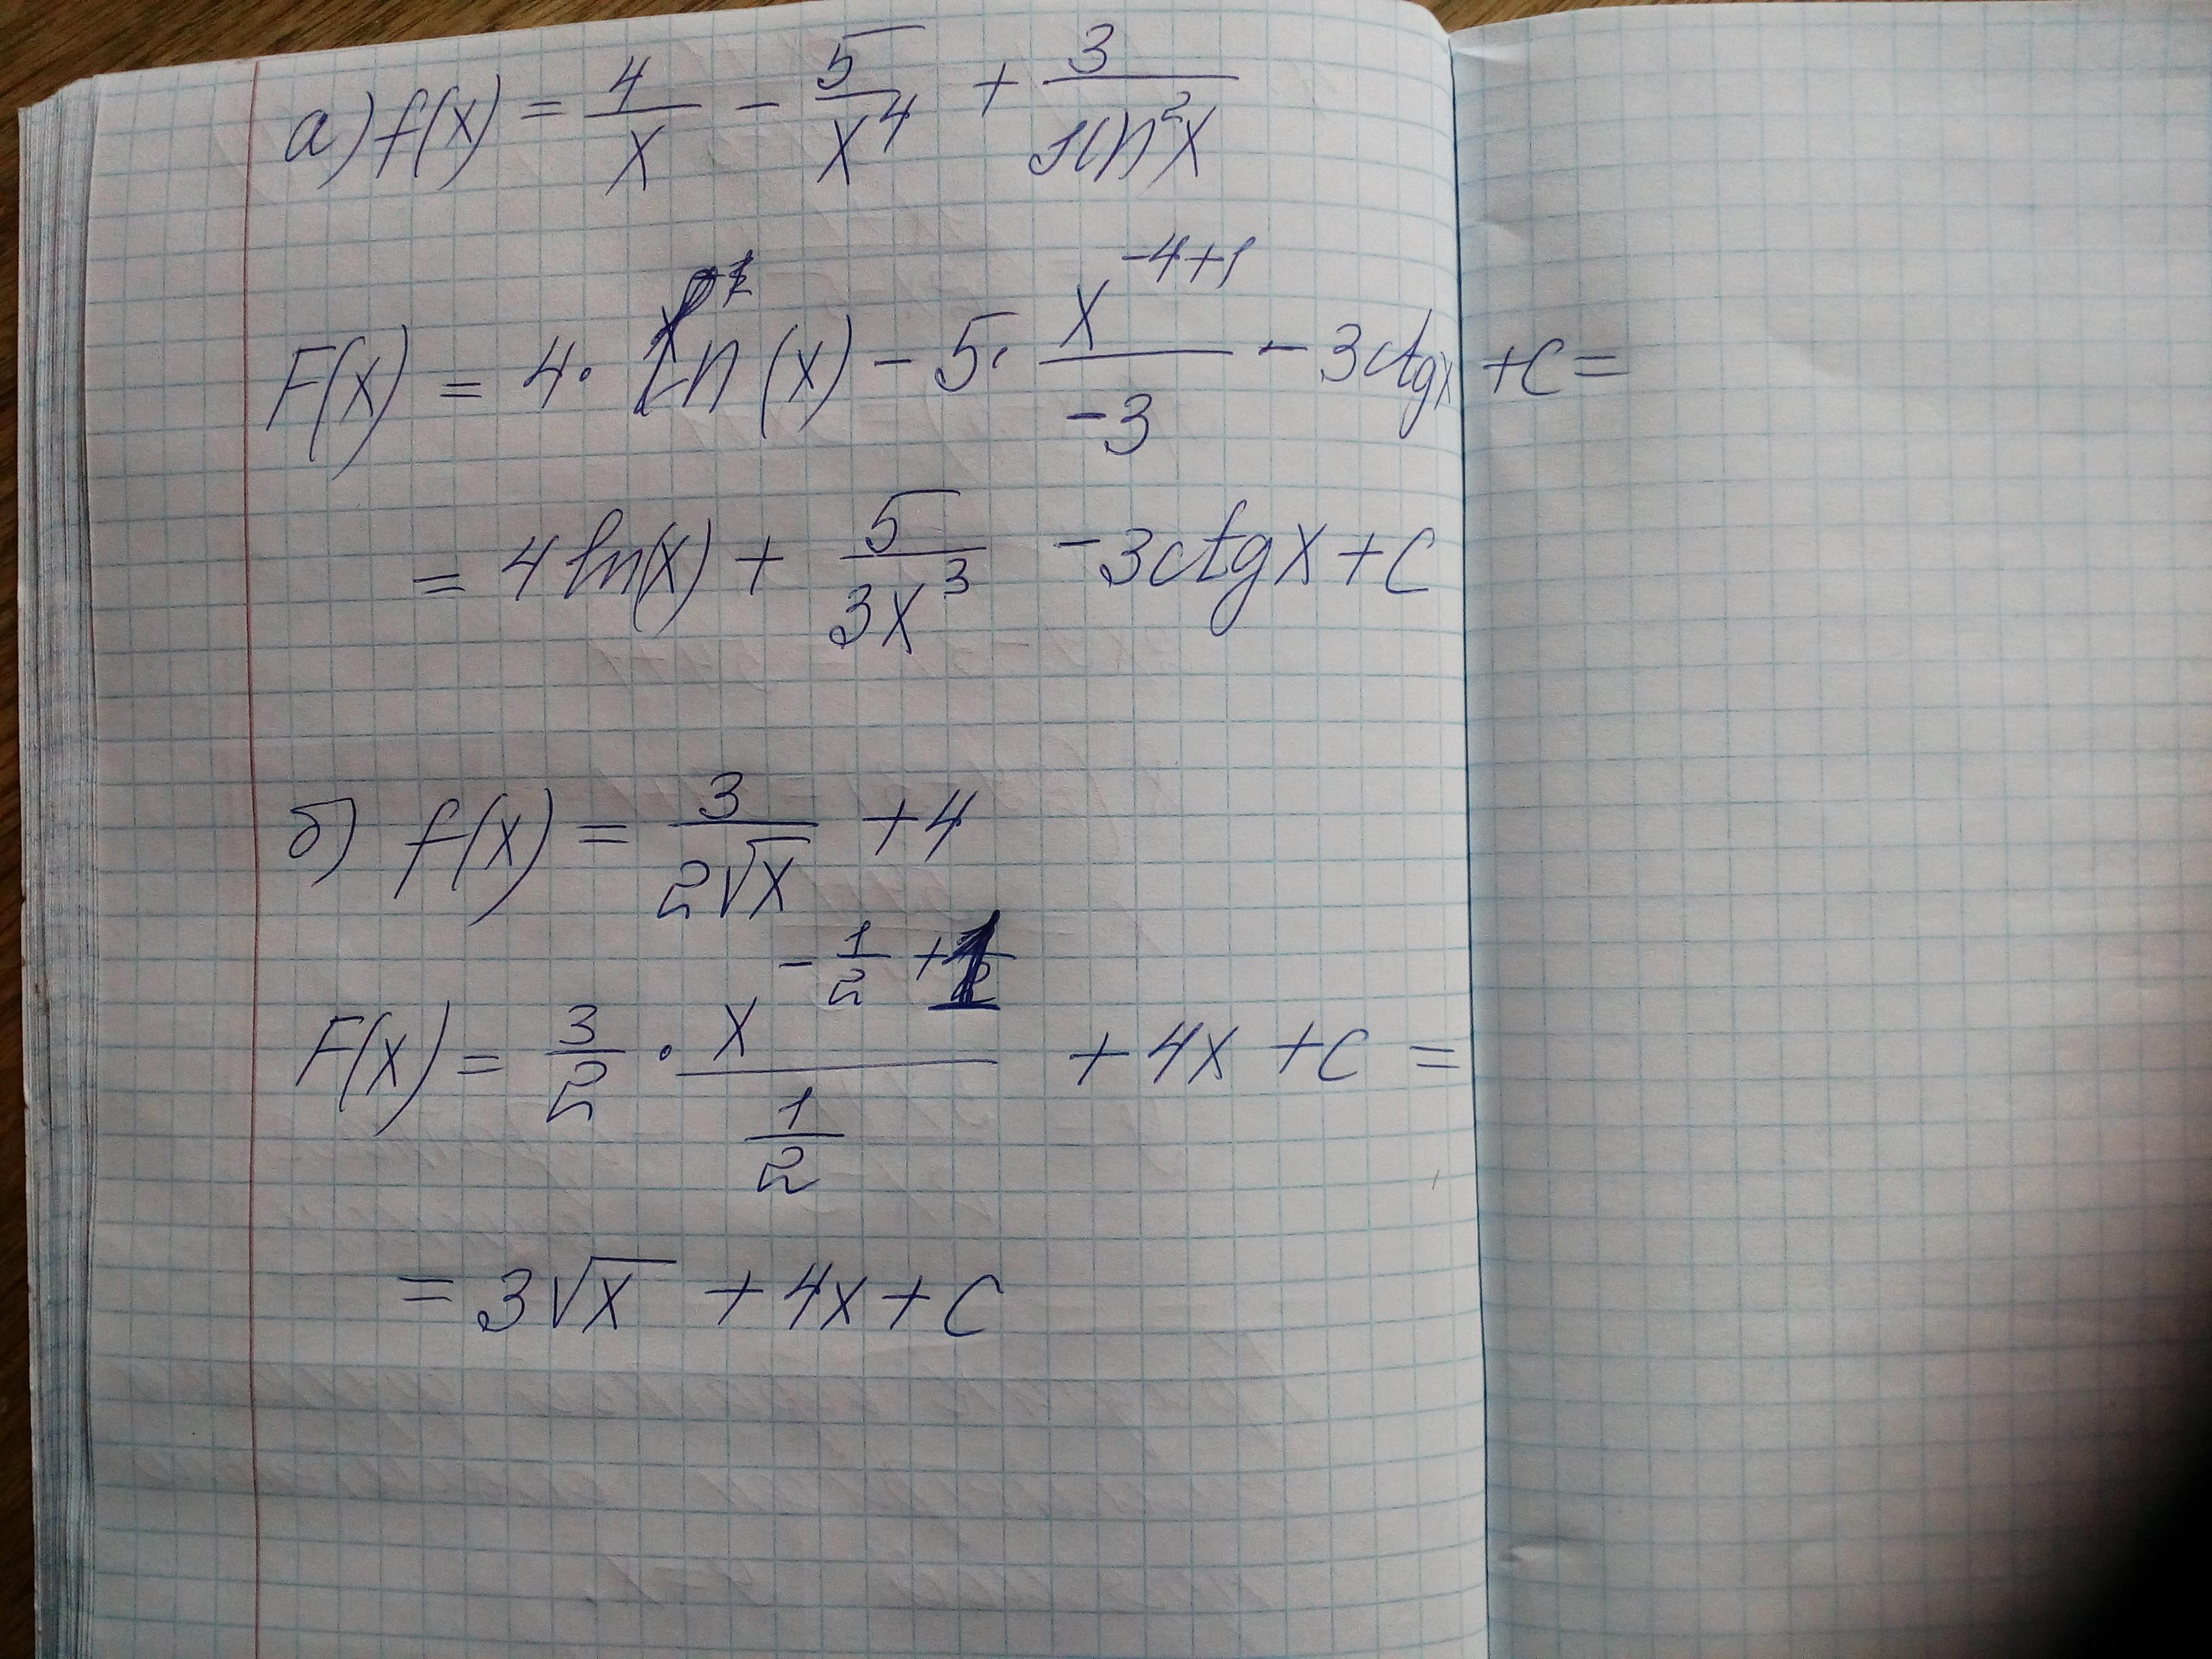 а) f(x) = 4/x - 5/x⁴ + 3/sin²x
F(x) = 4 · ln(x) - 5 · x⁻⁴⁺¹/-3 - 3ctgx + C =
= 4 ln(x) + 5/3x³ - 3ctgx + C
б) f(x) = 3/2√x + 4
F(x) = 3/2 · x^(-1/2 + 1)/(1/2) + 4x + C =
= 3√x + 4x + C